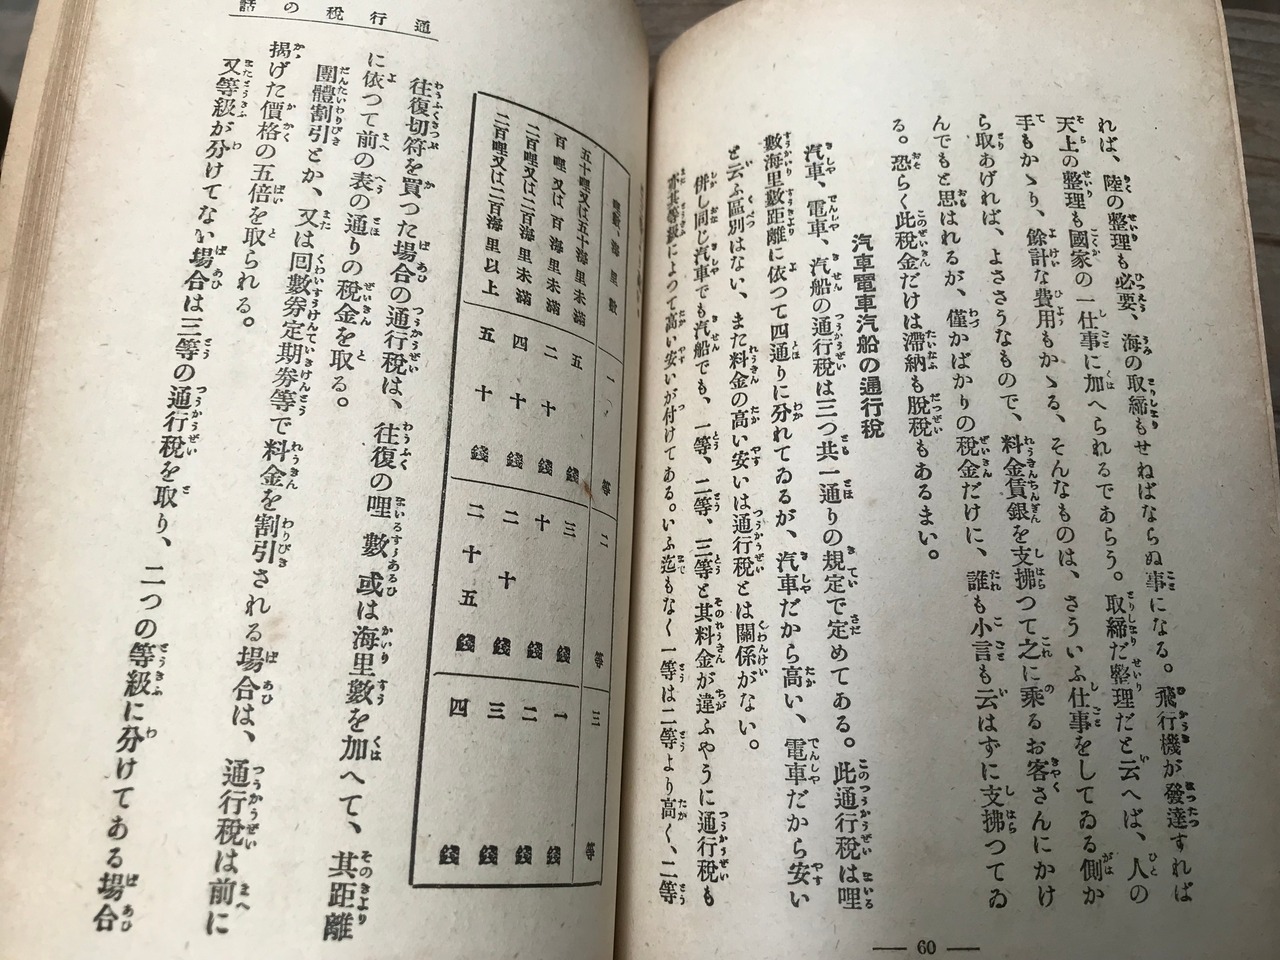 れば、陸の整理も必要、海の取締もせねばならぬ事になる。飛行機が發達すれば
天上の整理も國家の一仕事に加へられるであらう。取締だ整理だと云へば、人の
手もかゝり、餘計な費用もかゝる、そんなものは、さういふ仕事をしてゐる側か
ら取あげれば、よささうなもので、料金賃銀を支拂つて之に乘るお客さんにかけ
んでもと思はれるが、僅かばかりの稅金だけに、誰も小言も云はずに支拂つてゐ
る。恐らく此稅金だけは滯納も脫稅もあるまい。
汽車電車汽船の通行稅
汽車、電車、汽船の通行稅は三つ共一通りの規定で定めてある。此通行稅は哩
數海里數距離に依つて四通りに分れてゐるが、汽車だから高い、電車だから安い
と云ふ區別はない、また料金の高い安いは通行稅とは關係がない。
併し同じ汽車でも汽船でも、一等、二等、三等と其料金が違ふやうに通行稅も
亦其等級によつて高い安いが付けてある。いふ迄もなく一等は二等より高く、二等
60
通行稅の話
哩數、海里數 一等 二等 三等
五十哩又は五十海里未滿 五錢 三錢 一錢
百哩又は百海里未滿 二十錢 十錢 二錢
二百哩又は二百海里未滿 四十錢 二十錢 三錢
二百哩又は二百海里以上 五十錢 二十五錢 四錢
往復切符を買つた場合の通行稅は、往復の哩數或は海里數を加へて、其距離
に依つて前の表の通りの稅金を取る。
團體割引とか、又は囘數券定期券等で料金を割引される場合は、通行稅は前に
揭げた價格の五倍を取られる。
又等級が分けてない場合は三等の通行稅を取り、二つの等級に分けてある場合